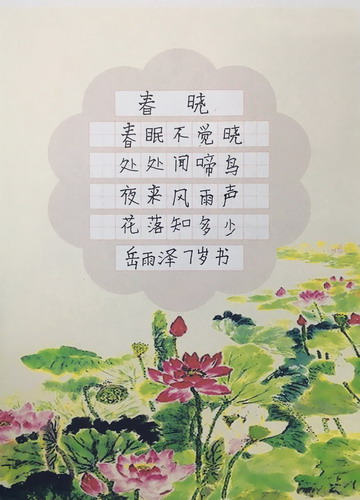 春 晓
春眠不觉晓
处处闻啼鸟
夜来风雨声
花落知多少
岳雨泽7岁书